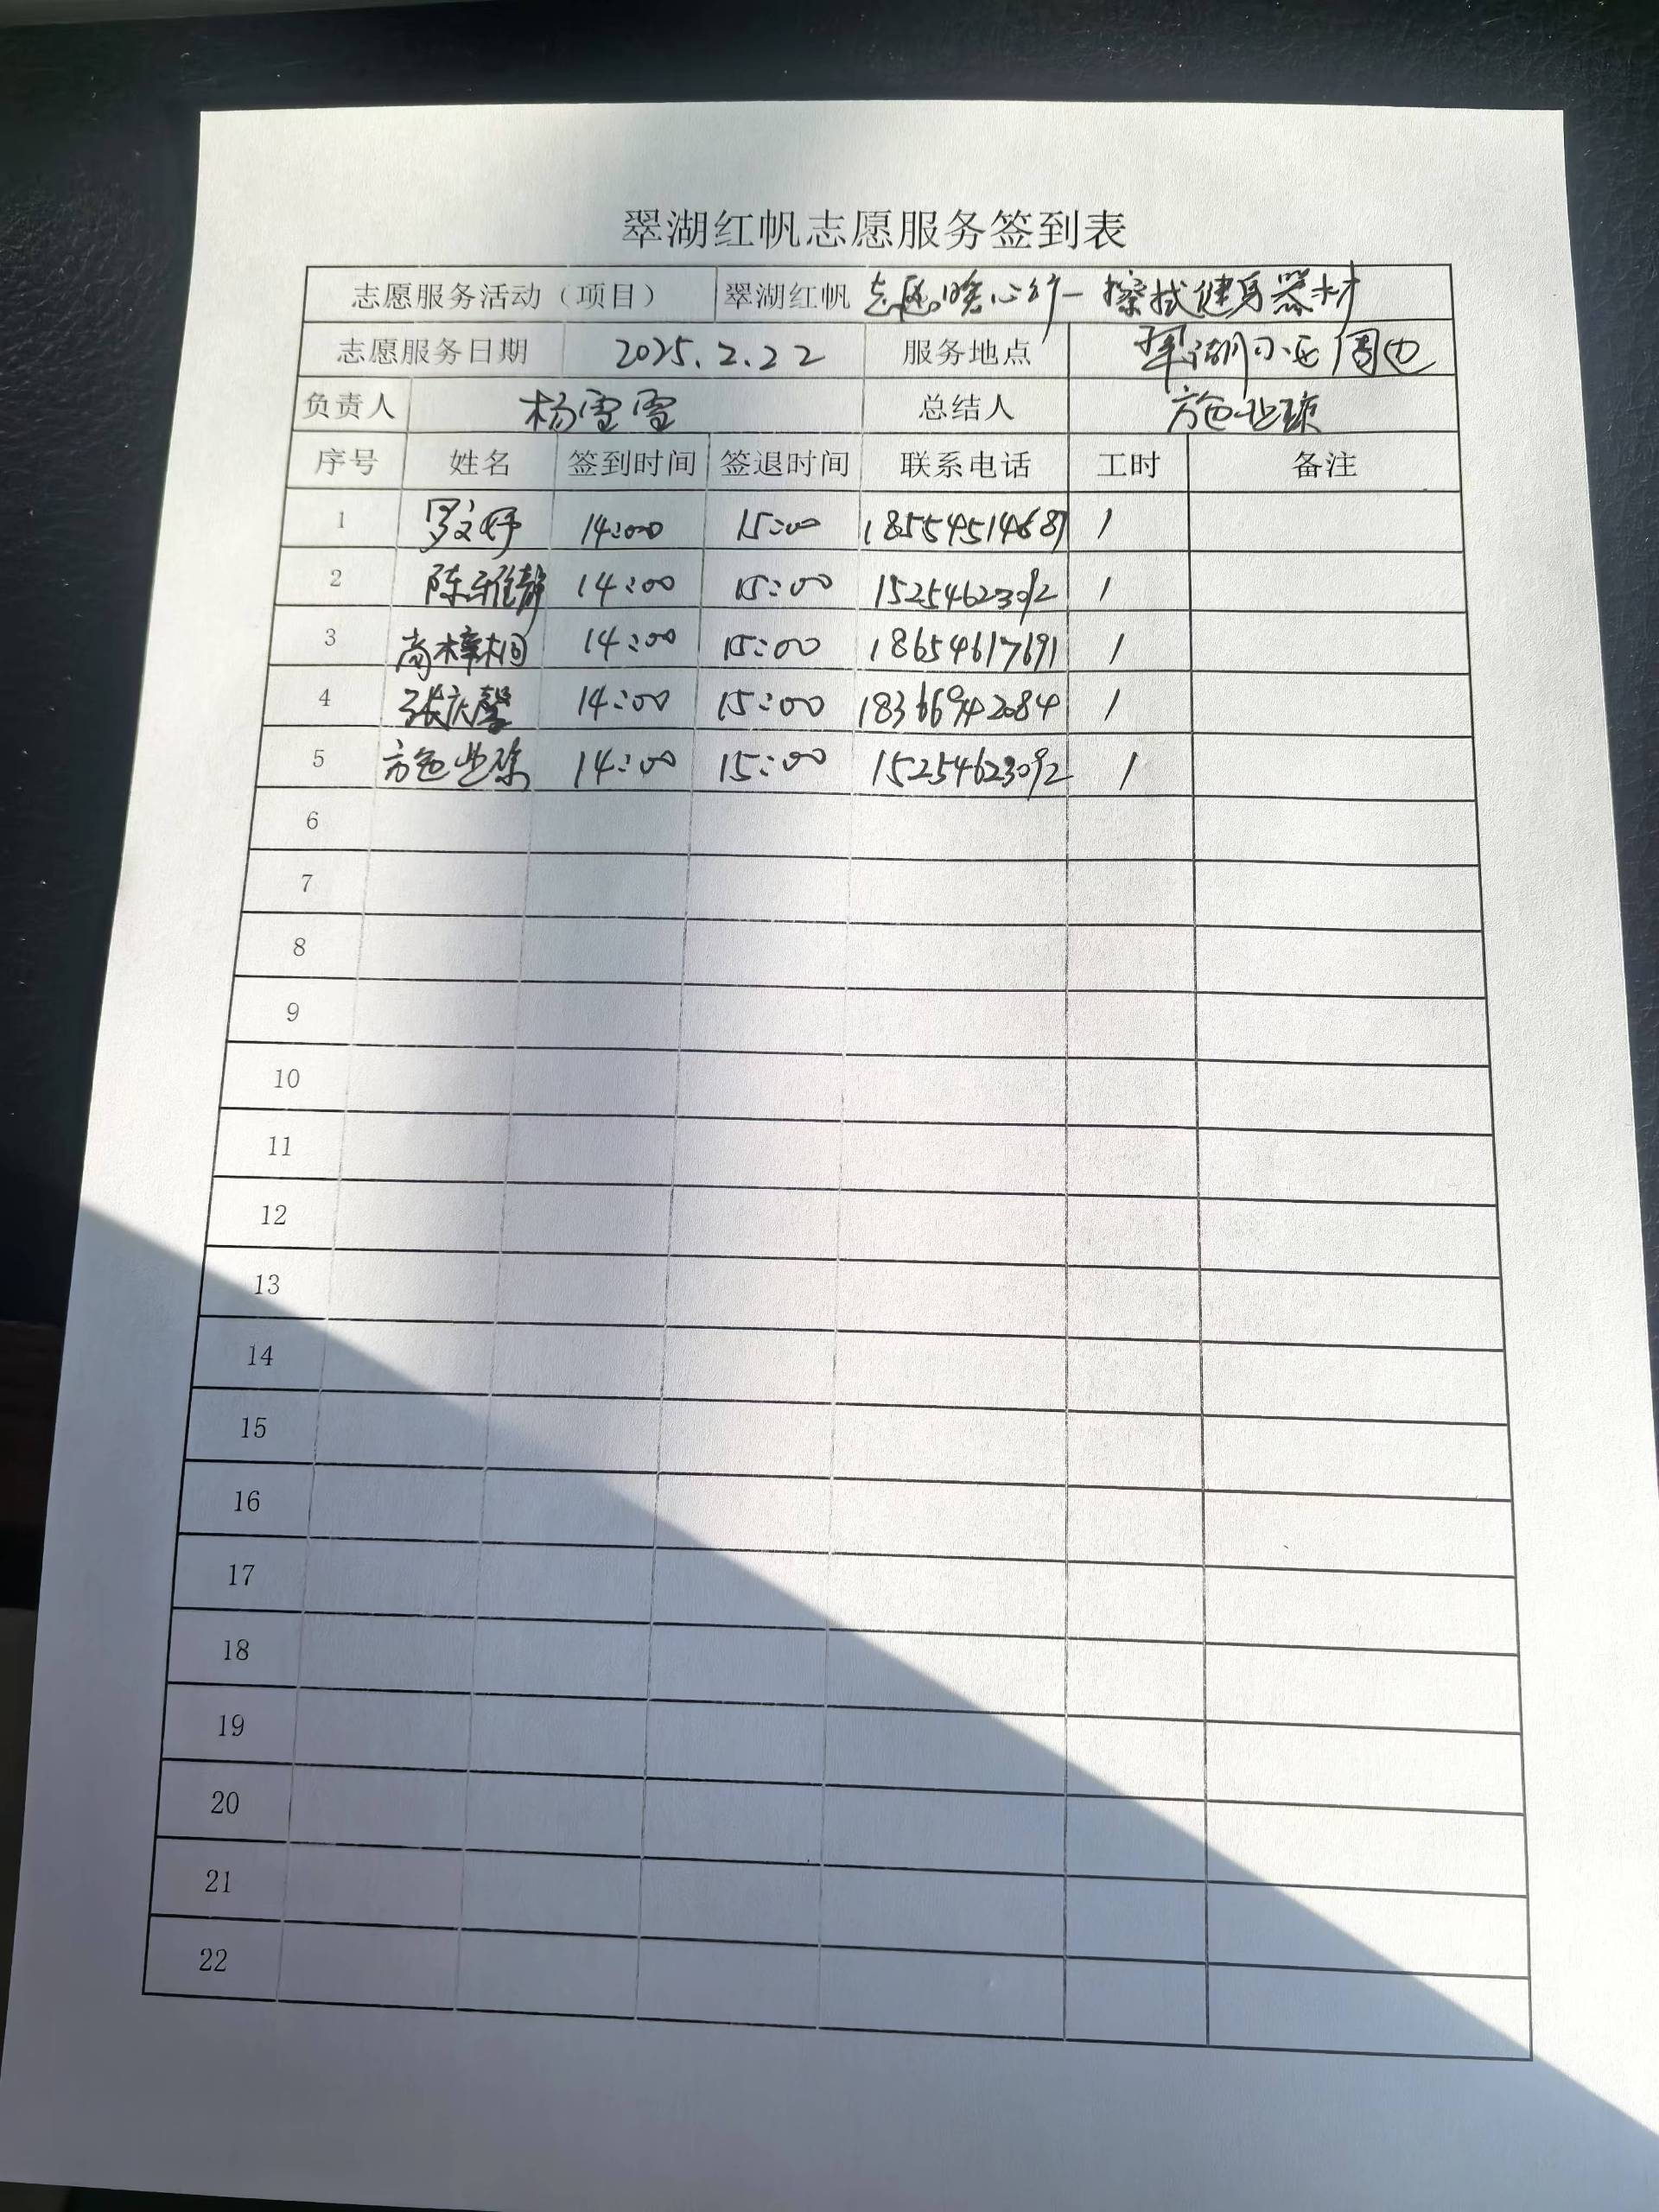 翠湖红帆志愿服务签到表
志愿服务活动（项目） 翠湖红帆 志愿暖心行一擦拭健身器材
志愿服务日期 2025.2.22 服务地点 翠湖小区周边
负责人 杨雪雪 总结人
序号 姓名 签到时间 签退时间 联系电话 工时 备注
1 罗文婷 14:00 15:00 18554514687 1
2 陈雅静 14:00 15:00 15254623092 1
3 高梓桐 14:00 15:00 18654617691 1
4 张庆馨 14:00 15:00 18366942084 1
5 14:00 15:00 15254623092 1
6
7
8
9
10
11
12
13
14
15
16
17
18
19
20
21
22